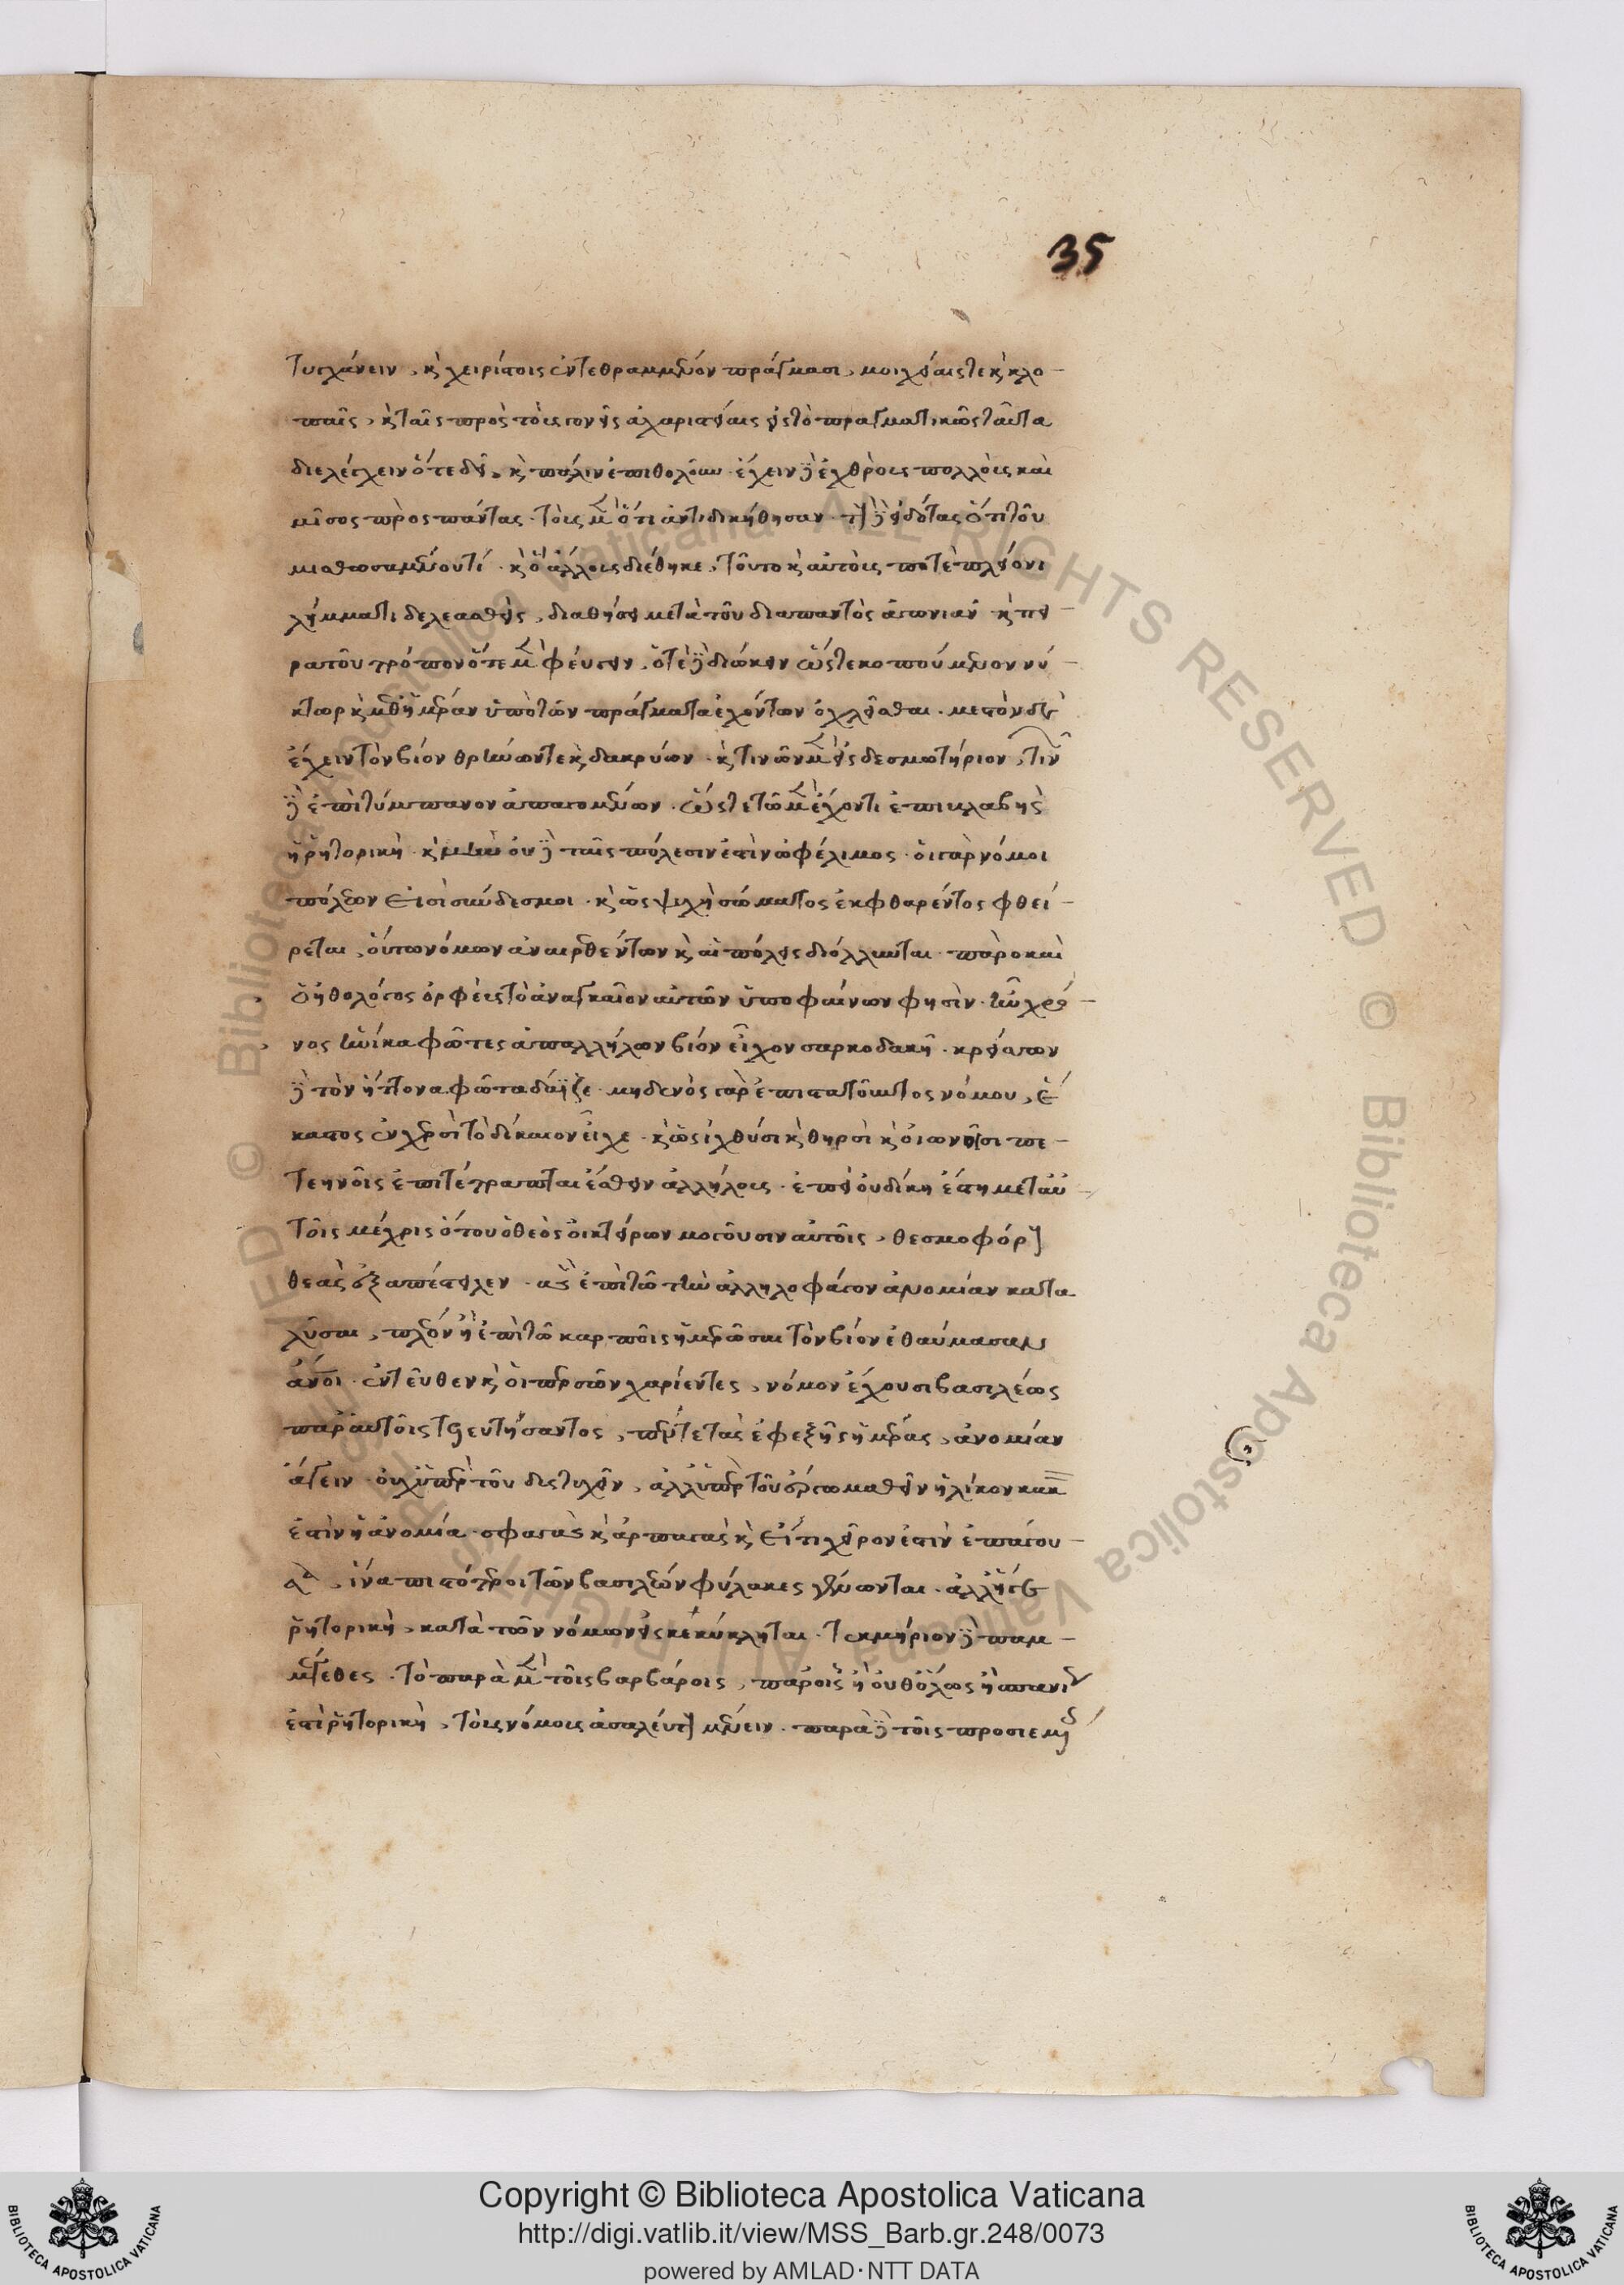 35
τυγχάνειν, κ χειρίστοις ἐντεθραμμένον πράγμασι, μοιχείαις τε κ κλο-
παῖς, κ ταῖς πρὸς τοὺς γονεῖς ἀχαριστείαις εἰς τὸ πραγματικῶς ταῦτα
διελέγχειν ὅτε δεῖ, κ πάλιν ἐπιθολοῦν. ἔχειν δὲ ἐχθροὺς πολλοὺς καὶ
μῖσος πρὸς πάντας. τοὺς μὲν ὅτι ἀντεδικήθησαν. τοὺς δὲ εἰδότας ὅτι τοῦ
μισθωσαμένου τί. κ ὃ ἄλλους διέθηκε, τοῦτο κ αὐτοὺς ποτὲ πλείονι
λήμματι δελεασθεὶς, διαθήσει μετὰ τοῦ διαπαντὸς ἀγωνιᾶν κ πει-
ρατοῦ τρόπον ὅτε μὲν φεύγειν, ὅτὲ δὲ διώκειν ὥστε κοπούμενον νύ-
κτωρ κ μεθ᾽ ἡμέραν ὑπὸ τῶν πράγματα ἐχόντων ὀχλεῖσθαι. μεστὸν δὲ
ἔχειν τὸν βίον θρήνων τε κ δακρύων. κ τινῶν μὲν εἰς δεσμωτήριον, τινῶν
δὲ ἐπὶ τύμπανον ἀπαγομένων. ὥστε τῷ μὲν ἔχοντι ἐπιβλαβὴς
ἡ ῥητορική. κ μὴν οὐδὲ ταῖς πόλεσιν ἐστὶν ὠφέλιμος. οἱ γὰρ νόμοι
πόλεων εἰσὶ σύνδεσμοι. κ ὡς ψυχὴ σώματος ἐκφθαρέντος φθεί-
ρεται, οὕτω νόμων ἀναιρεθέντων κ αἱ πόλεις διόλλυνται. παρὸ καὶ
ὁ ἠθολόγος ὀρφεὺς τὸ ἀναγκαῖον αὐτῶν ὑποφαίνων φησὶν. ἦν χρό-
νος ἡνίκα φῶτες ἀπαλλήλων βίον εἶχον σαρκοδακῆ. κρεῖσσων
δὲ τὸν ἥττονα φῶτα δάϊζε. μηδενὸς γὰρ ἐπιστατοῦντος νόμου, ἕ-
καστος ἐν χερσὶ τὸ δίκαιον εἶχε. κ ὡς ἰχθύσι κ θηρσὶ κ οἰωνοῖσι πε-
τεηνοῖς ἐπιτέτραπται ἔσθειν ἀλλήλους. ἐπεὶ οὐ δίκη ἐστὶ μετ᾽ αὐ-
τοῖς μέχρις ὅτου ὁ θεὸς οἰκτείρων μογοῦσιν αὐτοῖς, θεσμοφόρους
θεὰς ἐξαπέστειλεν. ἃς δὲ ἐπὶ τῷ τὴν ἀλληλοφάγον ἀνομίαν κατα
λῦσαι, πλέον ἢ ἐπὶ τῷ καρποῖς ἡμερῶσαι τὸν βίον ἐθαύμασαν
ἄνοι. ἐντεῦθεν κ οἱ περσῶν χαρίεντες, νόμον ἔχουσι βασιλέως
παρ᾽ αὐτοῖς τελευτήσαντος, πέντε τὰς ἐφεξῆς ἡμέρας, ἀνομίαν
ἄγειν οὐχ ὑπὲρ τοῦ δυστυχεῖν, ἀλλ᾽ ὑπὲρ τοῦ ἔργω μαθεῖν ἡλίκον κακ
ἐστὶν ἡ ἀνομία. σφαγὰς κ ἁρπαγὰς κ εἴ τι χεῖρον ἐστὶν ἐπάγου-
σα, ἵνα πιστότεροι τῶν βασιλέων φύλακες γένωνται. ἀλλ᾽ ἥγε
ῥητορικὴ, κατὰ τῶν νόμων εἰσκεκύκληται. τεκμήριον δὲ παμ-
μέγεθες. τὸ παρὰ μὲν τοῖς βαρβάροις, παρ᾽ οἷς ἢ οὐδ᾽ ὅλως ἢ σπανίως
ἐστὶ ῥητορικὴ, τοὺς νόμους ἀσαλεύτους μένειν. παρὰ δὲ τοῖς προσιεμέ
Copyright © Biblioteca Apostolica Vaticana
http://digi.vatlib.it/view/MSS_Barb.gr.248/0073
powered by AMLAD·NTT DATA